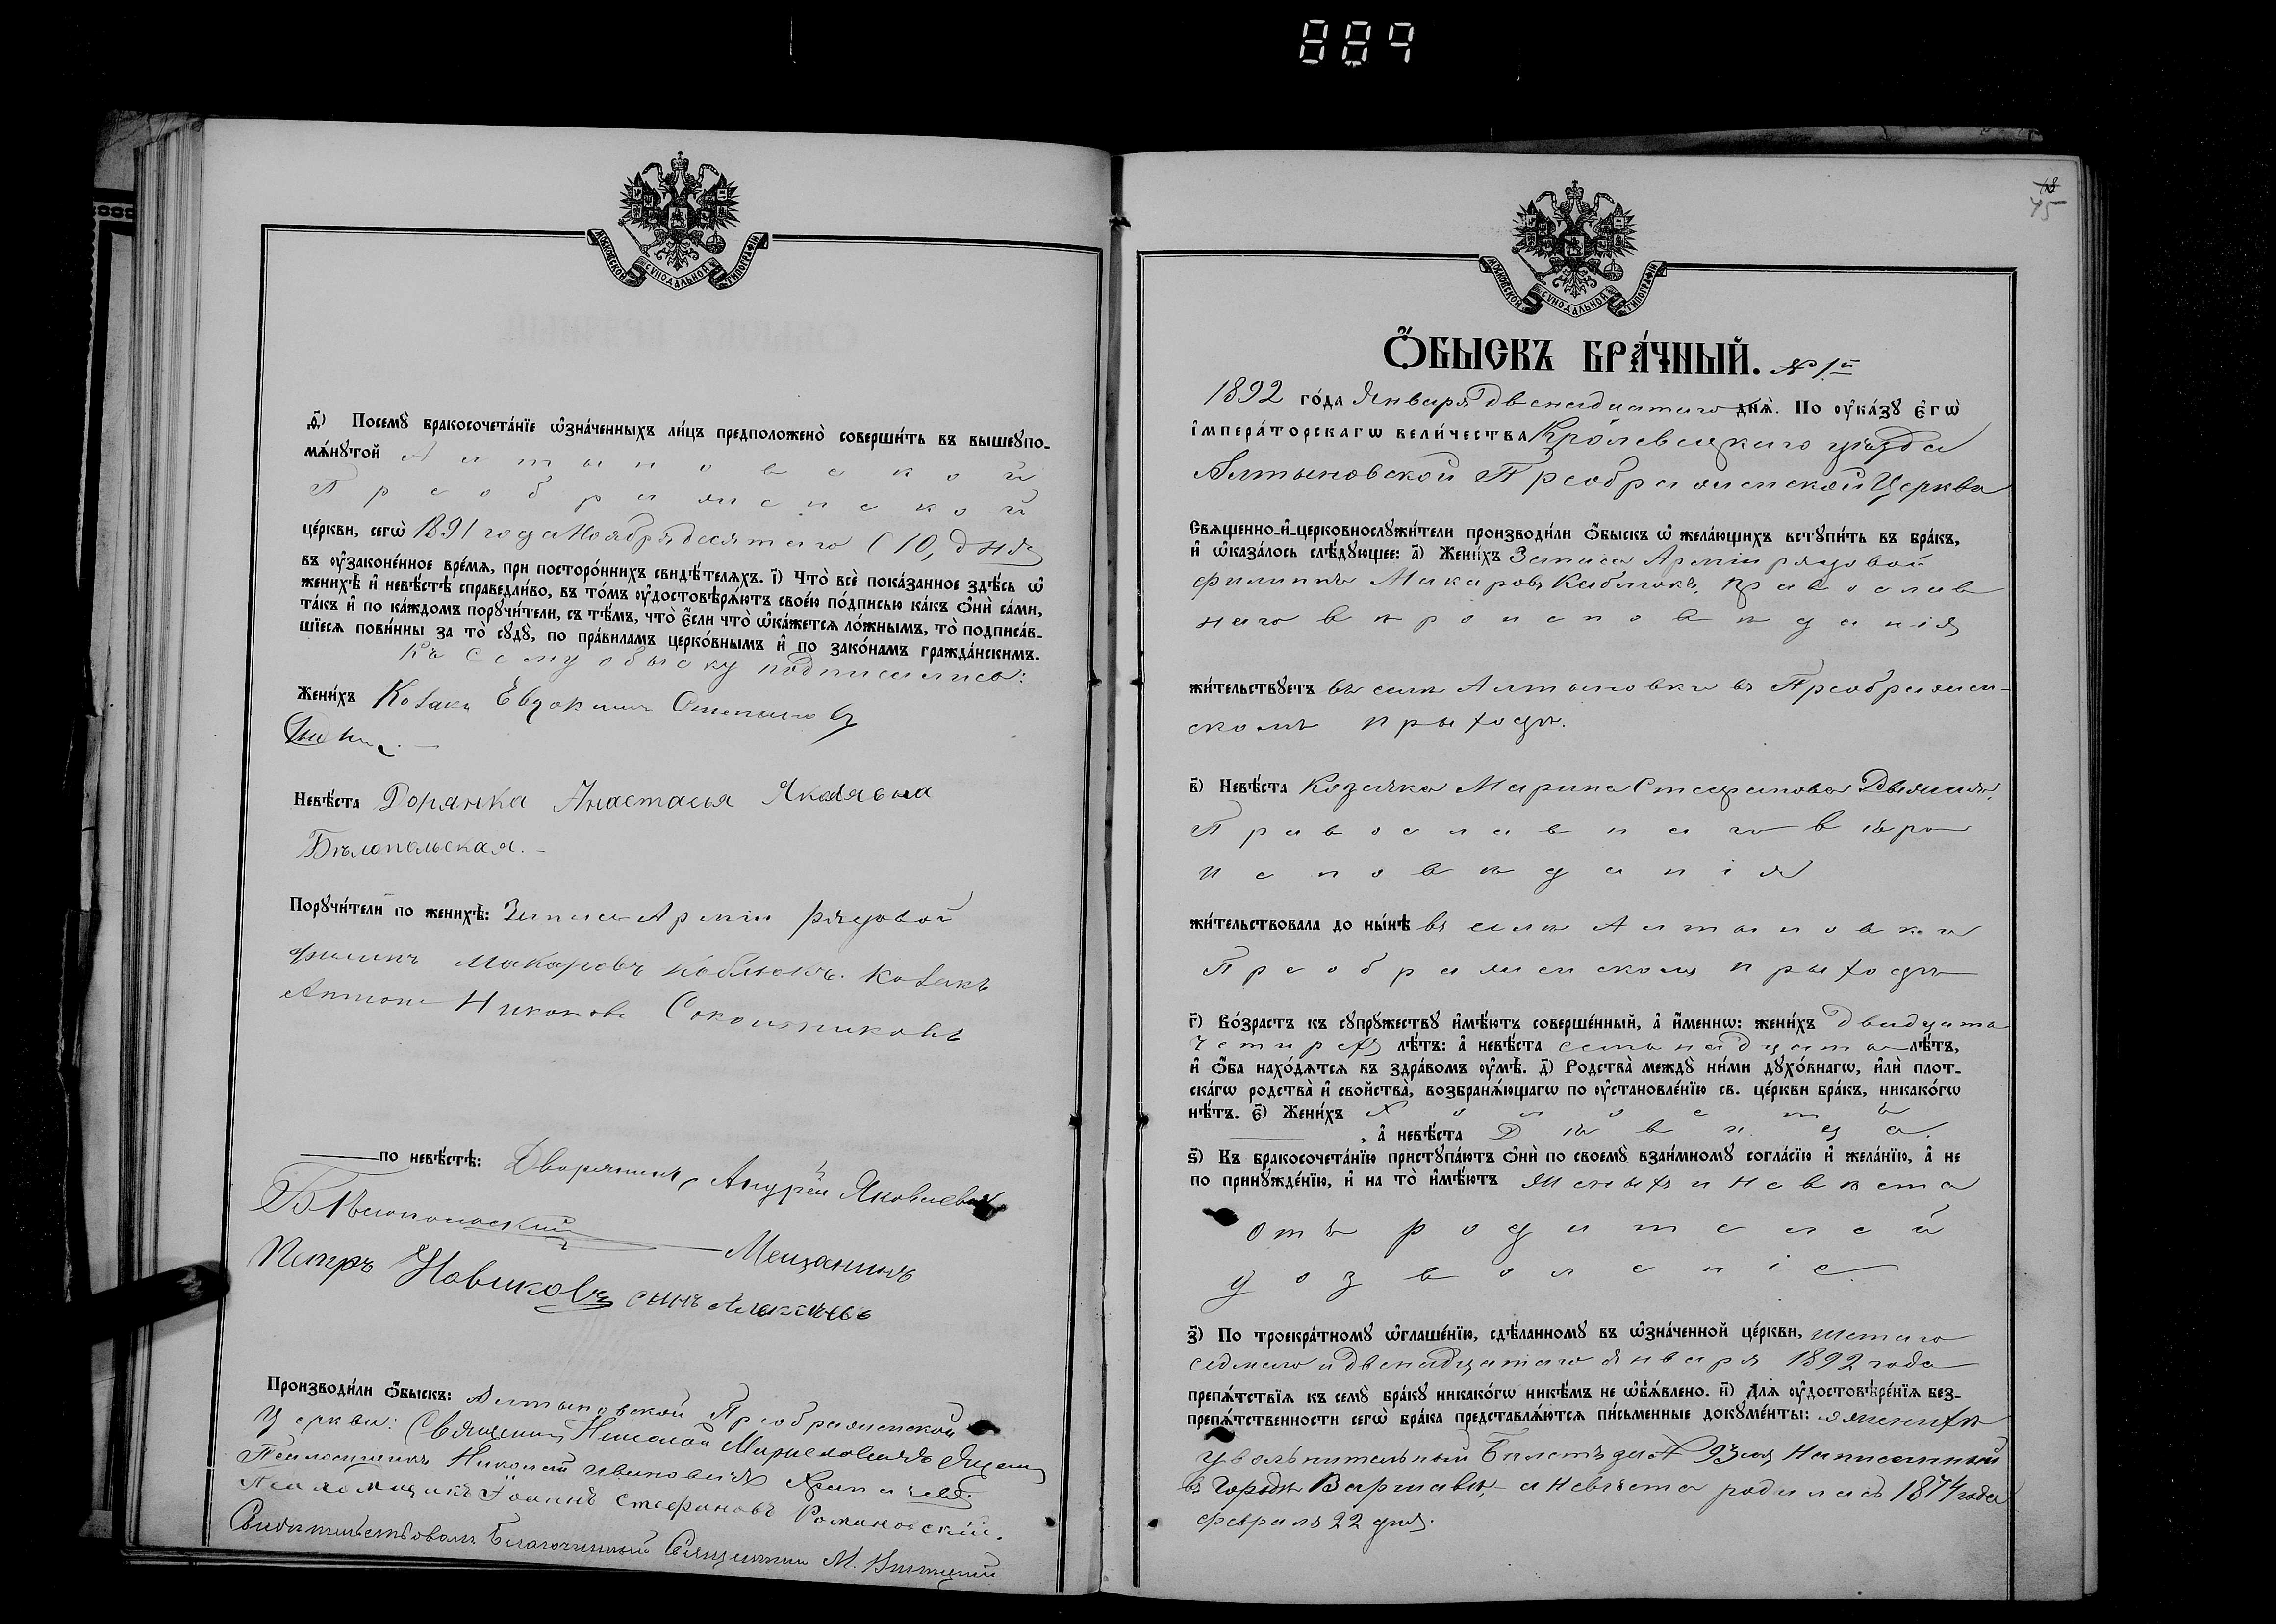 889
МОСКОВСКОЙ СѴНОДАЛЬНОЙ ТИПОГРАФІИ
ѳ҃) Посемꙋ̀ бракосочета́нїе ѡ҆зна́ченныхъ ли́цъ предположено̀ соверши́ть въ вышеꙋпо-
мѧ́нꙋтой Алтыновской
Преображенской
це́ркви, сегѡ̀ 1891 года Ноября десятаго (10) дня
въ ᲂу҆зако́ненное вре́мѧ, при посторо́ннихъ свидѣ́телѧхъ. і҃) Что̀ всѐ пока́занное здѣ́сь ѡ҆
женихѣ̀ и҆ невѣ́стѣ справедли́во, въ то́мъ ᲂу҆достовѣрѧ́ютъ свое́ю по́дписью ка́къ ѻ҆нѝ са́ми,
та́къ и҆ по ка́ждомъ порꙋчи́тели, съ тѣ́мъ, что̀ є҆́сли что̀ ѡ҆ка́жетсѧ ло́жнымъ, то̀ подписа́в-
шїесѧ пови́нны за то̀ сꙋдꙋ̀, по пра́виламъ церко́внымъ и҆ по зако́намъ гражда́нскимъ.
Къ сему обыску подписались:
Жени́хъ Козакъ Евдокимъ Степановъ
Невѣ́ста Дорянка Анастасья Яковлевна
Бѣлопольская.
Порꙋчи́тели по женихѣ̀: Запаса Арміи рядовой
Филипъ Макаровъ Коблюкъ. Козакъ
Антонъ Никоновъ Сокольниковъ
по невѣ́стѣ: Дворянинъ Андрей Яковлевичъ
Бѣлопольский Мещанинъ
Петръ Новиковъ сынъ Алексѣевъ
Производи́ли ѻ҆́быскъ: Алтыновской Преображенской
Церкви: Священникъ Николай
Псаломщикъ Николай Ивановичъ
Псаломщикъ Іоаннъ Стефановъ Романовскій.
Свидѣтельствовалъ Благочинный Священникъ М.
45
МОСКОВСКОЙ СѴНОДАЛЬНОЙ ТИПОГРАФІИ
Ѻ҆́БЫСКЪ БРА́ЧНЫЙ. № 1й
1892 го́да Января двенадцатаго днѧ̀. По ᲂу҆ка́зꙋ є҆гѡ̀
і҆мпера́торскагѡ вели́чества Кролевецкаго уѣзда
Алтыновской Преображенской Церкви
Свѧще́нно-и҆-церковнослꙋжи́тели производи́ли ѻ҆́быскъ ѡ҆ жела́ющихъ встꙋпи́ть въ бра́къ,
и҆ ѡ҆каза́лось слѣ́дꙋющее: а҃) Жени́хъ Запаса Арміи рядовой
Филиппъ Макаровъ Каблюкъ, православ
наго вѣроисповѣданія
жи́тельствꙋетъ въ селѣ Алтыновки въ Преображен-
скомъ прыходѣ.
в҃) Невѣ́ста Козачка Марина Стефанова
Православнаго вѣро
исповѣданія
жи́тельствовала до ны́нѣ въ селѣ Алтыновки
Преображенскомъ прыходѣ
г҃) Во́зрастъ къ сꙋпрꙋ́жествꙋ и҆мѣ́ютъ соверше́нный, а҆ и҆́меннѡ: жени́хъ двадцать
четырехъ лѣ́тъ: а҆ невѣ́ста семнадцать лѣ́тъ,
и҆ ѻ҆́ба нахо́дѧтсѧ въ здра́вомъ ᲂу҆мѣ̀. д҃) Родства̀ междꙋ̀ ни́ми дꙋхо́внагѡ, и҆лѝ плот-
ска́гѡ родства̀ и҆ свойства̀, возбранѧ́ющагѡ по ᲂу҆становле́нїю св. це́ркви бра́къ, никако́гѡ
нѣ́тъ. є҃) Жени́хъ Холостъ
, а҆ невѣ́ста Дѣвица.
ѕ҃) Къ бракосочета́нїю пристꙋпа́ютъ ѻ҆нѝ по своемꙋ̀ взаи́мномꙋ согла́сїю и҆ жела́нїю, а҆ не
по принꙋжде́нїю, и҆ на то̀ и҆мѣ́ютъ Женыхъ и Невѣста
отъ родителей
дозволеніе.
з҃) По троекра́тномꙋ ѡ҆глаше́нїю, сдѣ́ланномꙋ въ ѡ҆зна́ченной це́ркви, шестаго
седмаго и двенадцатаго Января 1892 года
препѧ́тствїѧ къ семꙋ̀ бра́кꙋ никако́гѡ никѣ́мъ не ѡ҆б̾ѧ́влено. и҃) Длѧ̀ ᲂу҆достовѣре́нїѧ без-
препѧ́тственности сегѡ̀ бра́ка представлѧ́ютсѧ пи́сьменные докꙋме́нты: о женихѣ
увольнительный Билетъ за № 93 Написанный
въ Городѣ Варшавѣ, а невѣста родилась 1874 года
февраля 22 дня.